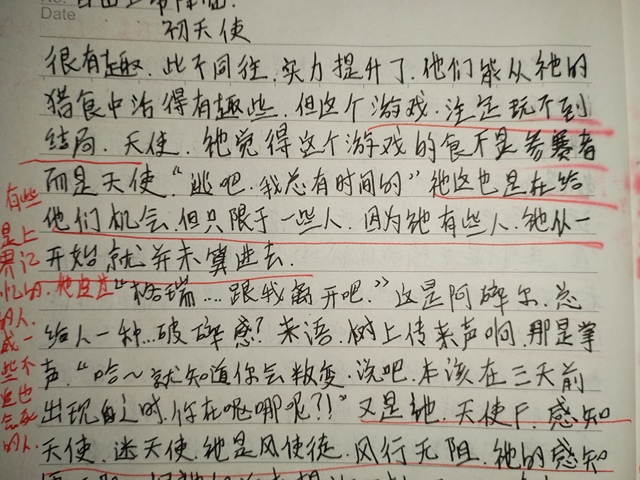 Date
初天使
很有趣.此不同往.实力提升了.他们能从祂的
猎食中活得有趣些.但这个游戏.注定玩不到
结局.天使.祂觉得这个游戏的食不是参赛者
而是天使“逃吧.我总有时间的”祂这也是在给
他们机会.但只限于一些人.因为祂有些人.祂从一
开始就并未算进去.
“格瑞....跟我离开吧.”这是阿碎尔.总
给人一种...破碎感?来语.树上传来声响.那是掌
声.“哈~就知道你会叛变.说吧.本该在三天前
出现自己时.你在呢哪呢?!”又是祂.天使F.感知
天使.迷天使.祂是风使徒.风行无阻.祂的感知
有些
是上
界记
忆的
的人.
或一
些不
会死
的人.